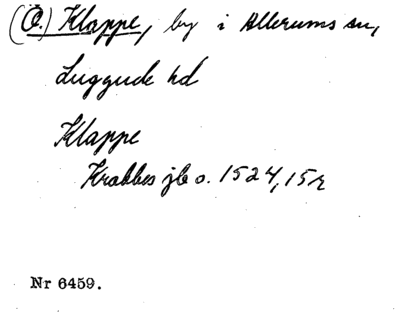 (Ö.) Klappe, by i Allerums sn,
Luggude hd
Klappe
Krabbes jb o. 1524, 15r
Nr 6459.